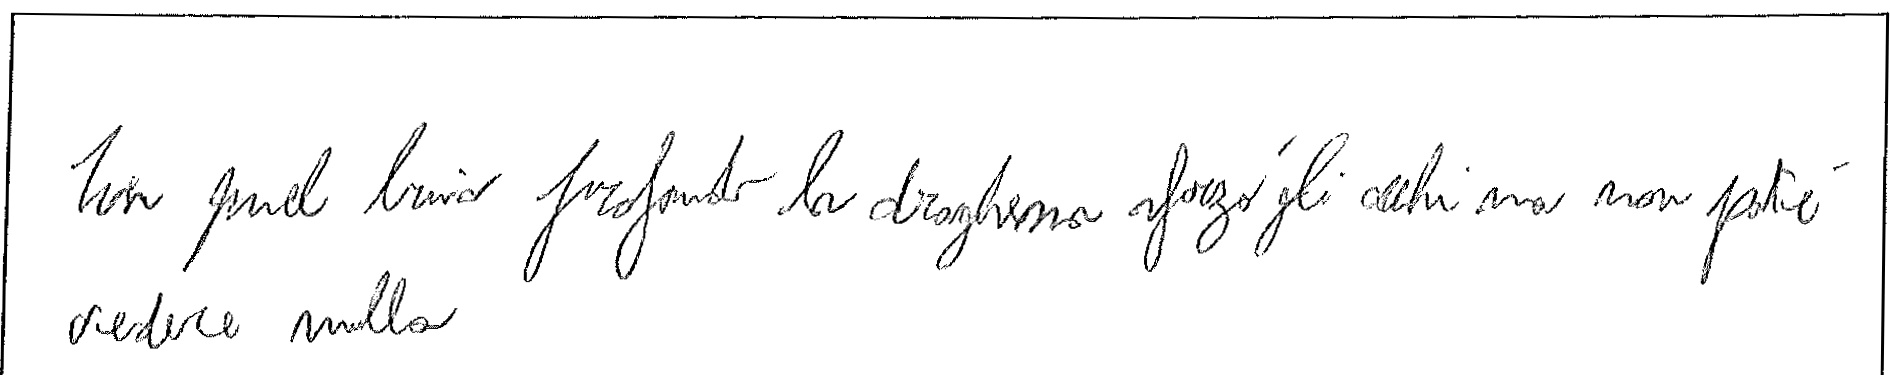 Con quel buio profondo la draghessa sforzò gli occhi ma non poté
vedere nulla